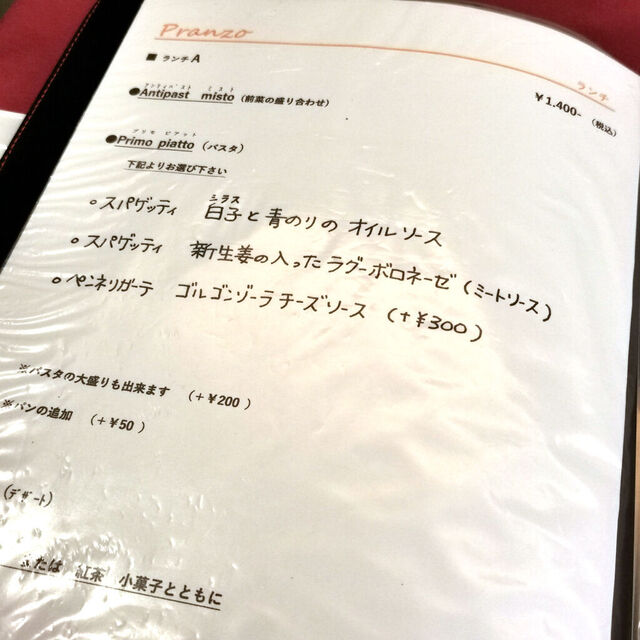 Pranzo
ランチ
■ ランチA
¥1.400- (税込)
アンティパスト ミスト
●Antipast misto (前菜の盛り合わせ)
プリモ ピアット
●Primo piatto (パスタ)
下記よりお選び下さい
シラス
○ スパゲッティ 白子と青のりの オイルソース
○ スパゲッティ 新生姜の入ったラグーボロネーゼ (ミートソース)
○ ペンネリガーテ ゴルゴンゾーラチーズソース (+¥300)
※パスタの大盛りも出来ます (+¥200 )
※パンの追加 (+¥50 )
(デザート)
または 紅茶 小菓子とともに